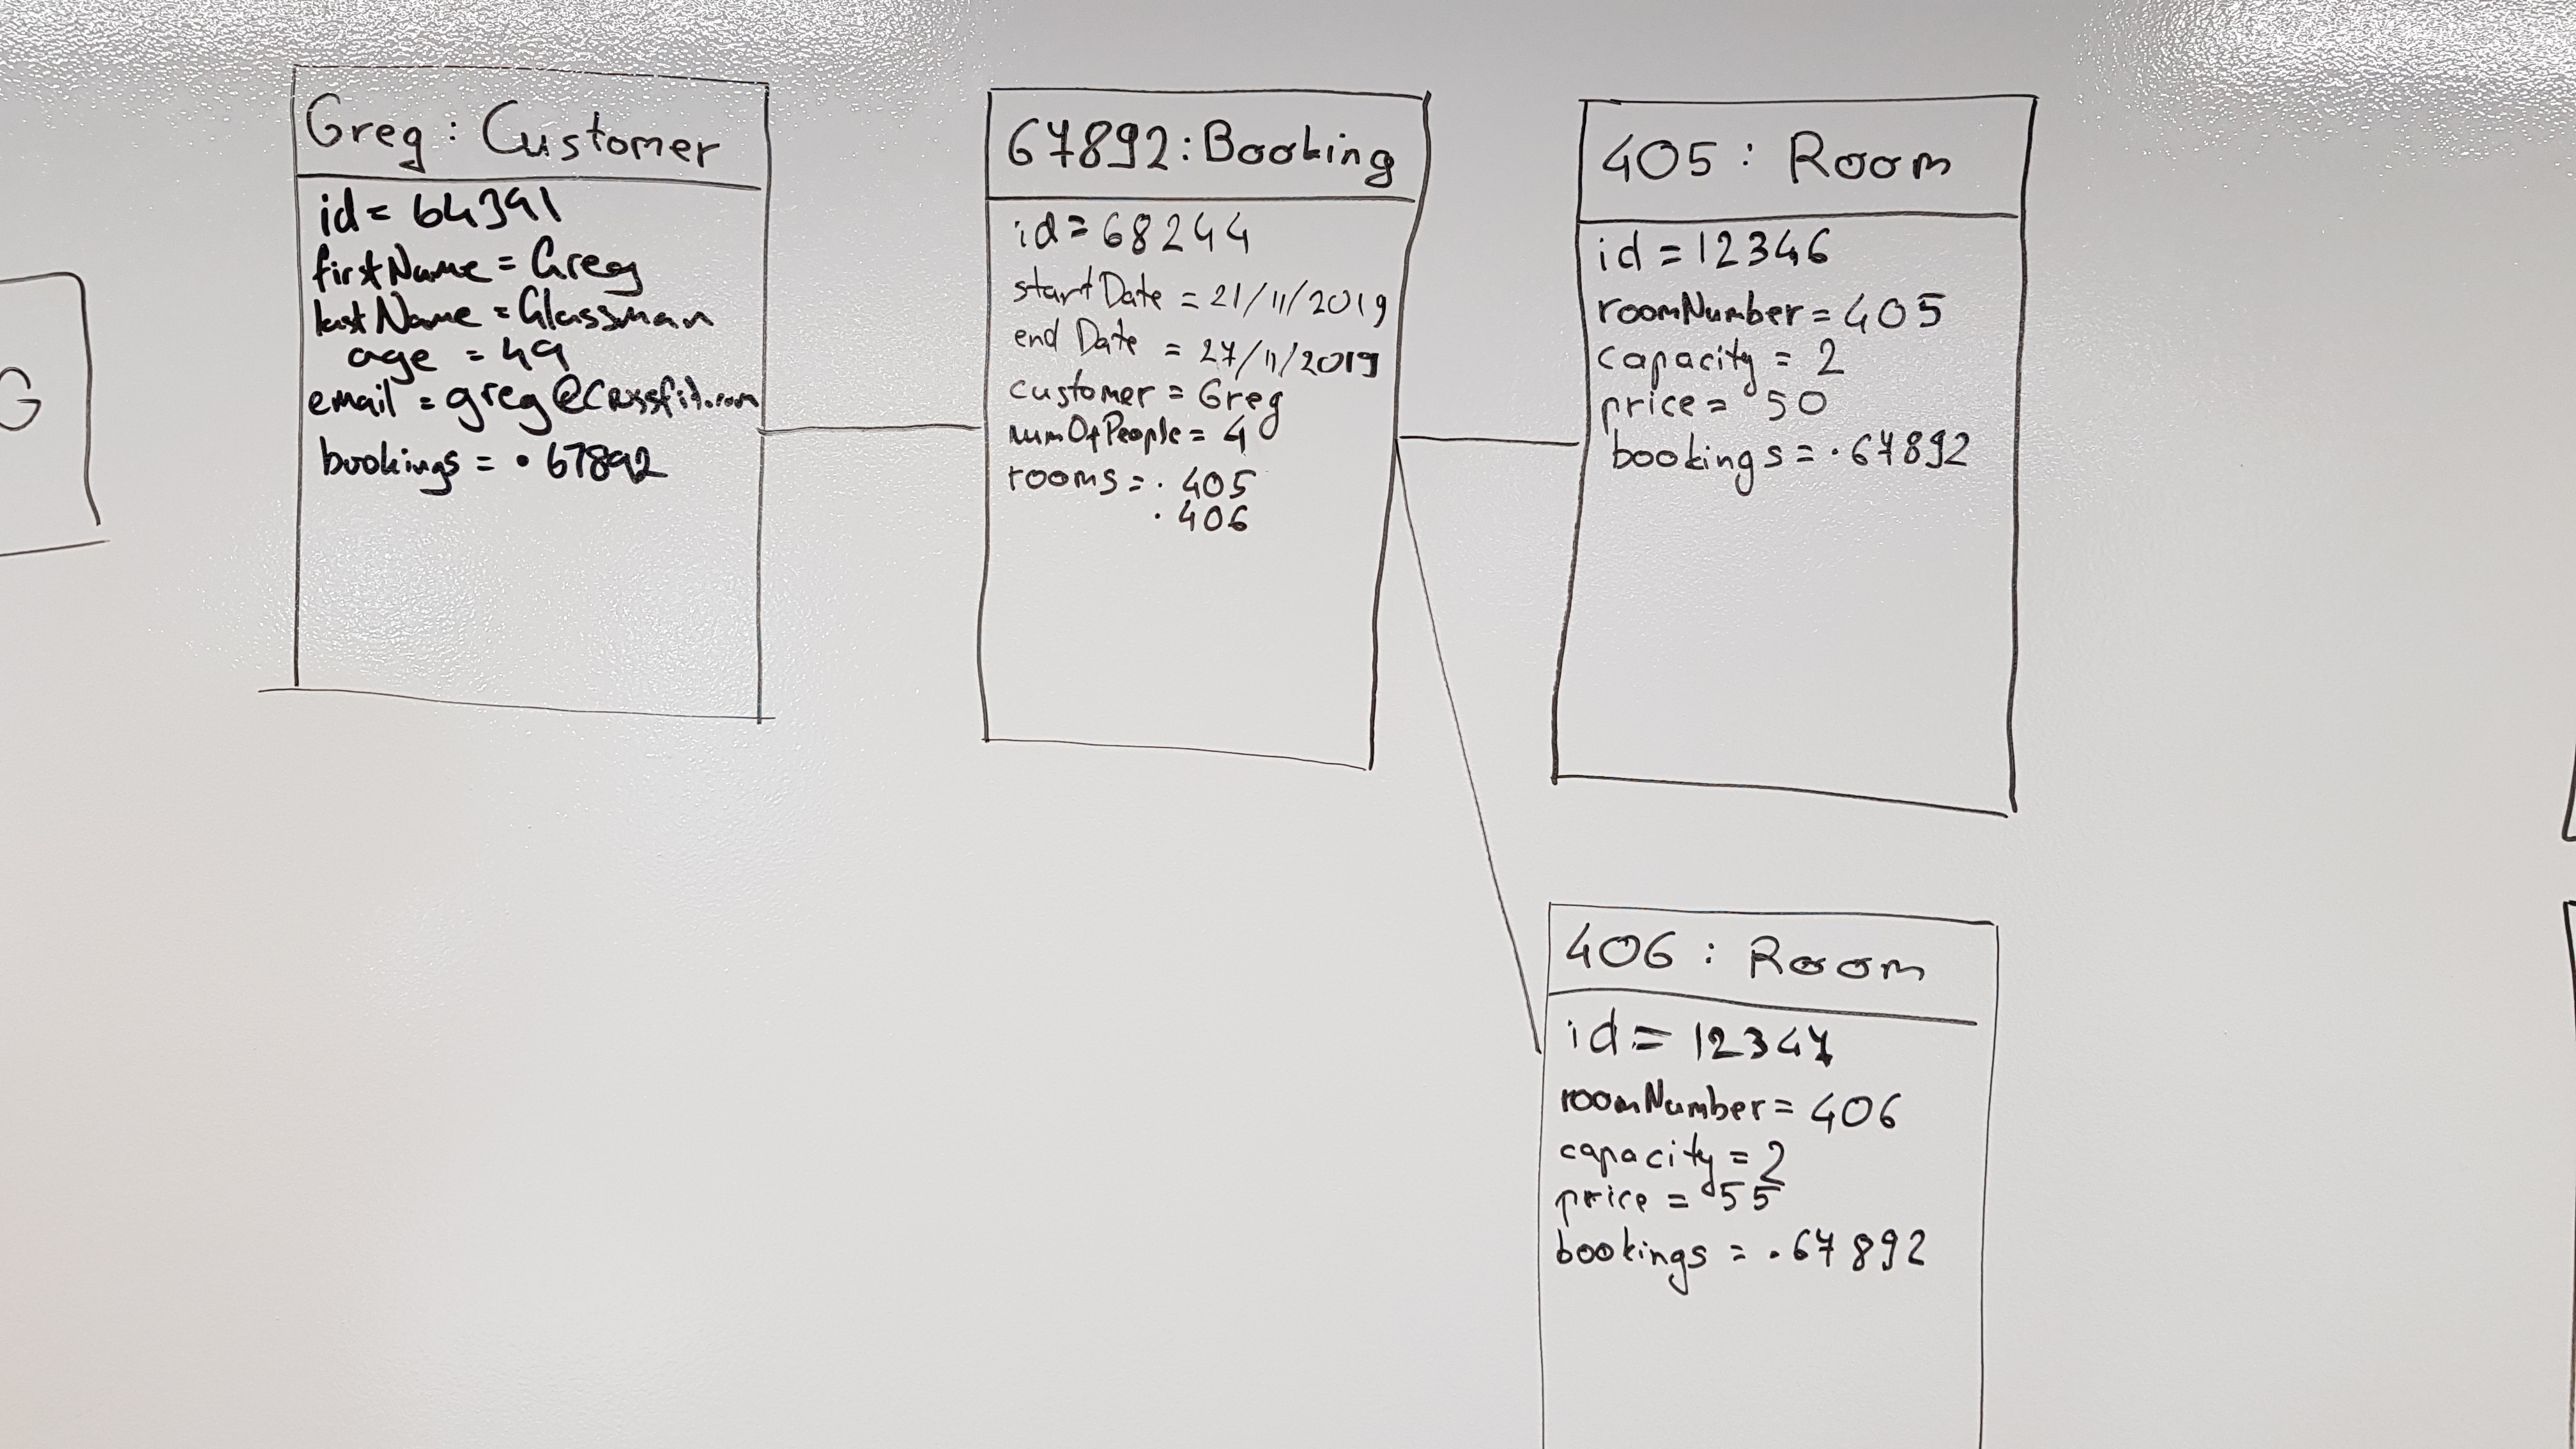 G
Greg : Customer
id = 64391
firstName = Greg
lastName = Glassman
age = 49
email = greg@crossfit.com
bookings = • 67892
67892:Booking
id = 68244
startDate = 21/11/2019
endDate = 27/11/2019
customer = Greg
numOfPeople = 4
rooms = · 405
· 406
405 : Room
id = 12346
roomNumber = 405
capacity = 2
price = 50
bookings = · 67892
406 : Room
id = 12347
roomNumber = 406
capacity = 2
price = 55
bookings = · 67892